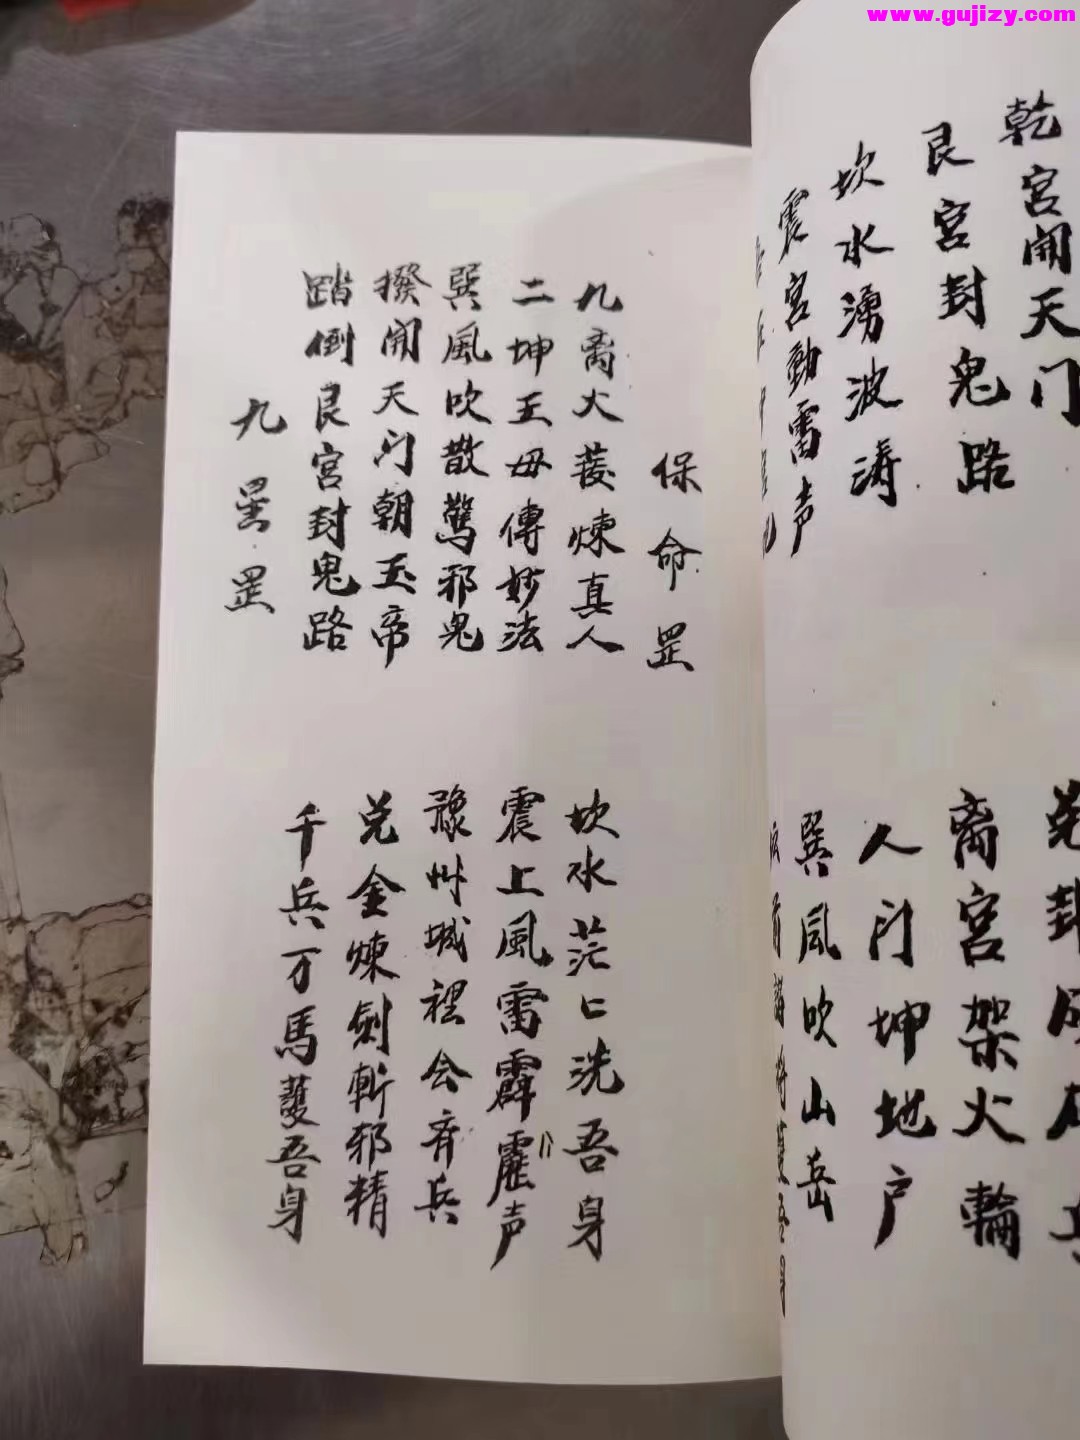 www.gujizy.com
乾宮開天门
艮宮封鬼路
坎水湧波濤
震宮動雷声
离宮架火輪
人门坤地户
巽風吹山岳
保命罡
九离火蓤煉真人
坎水茫〻洗吾身
二坤王母傳妙法
震上風雷霹靂声
巽風吹散驚邪鬼
豫州城裡会齐兵
撥開天门朝玉帝
兑金煉劍斬邪精
踏倒艮宮封鬼路
千兵万馬護吾身
九罡